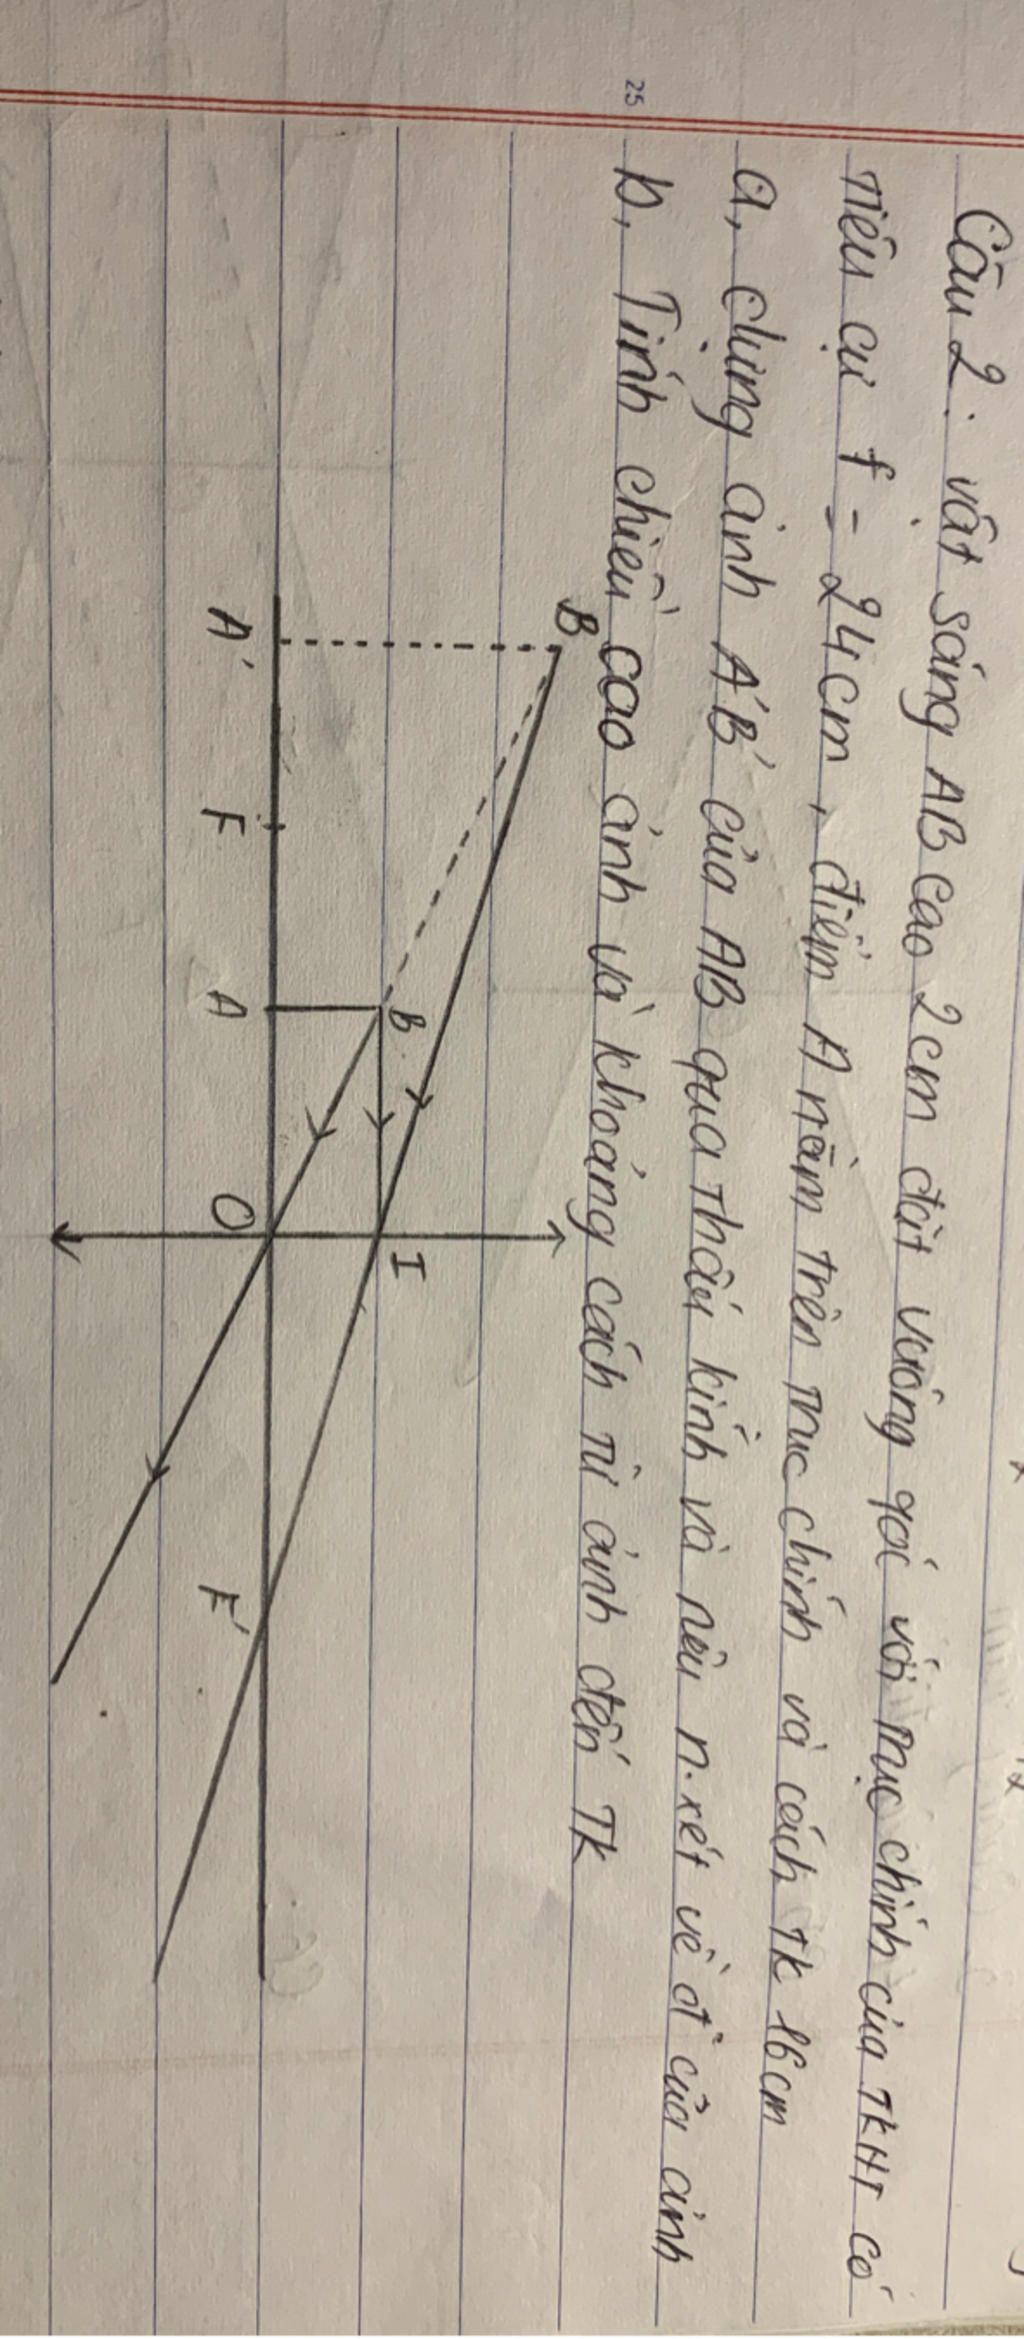 Câu 2: vật sáng AB cao 2cm đặt vuông góc với trục chính của TKHT có
tiêu cự f = 24cm, điểm A nằm trên trục chính và cách TK 16cm
a, dựng ảnh A'B' của AB qua thấu kính và nêu n.xét về đ² của ảnh
b, Tính chiều cao ảnh và khoảng cách từ ảnh đến TK
25
B
B
I
A'
F
A
O
F'